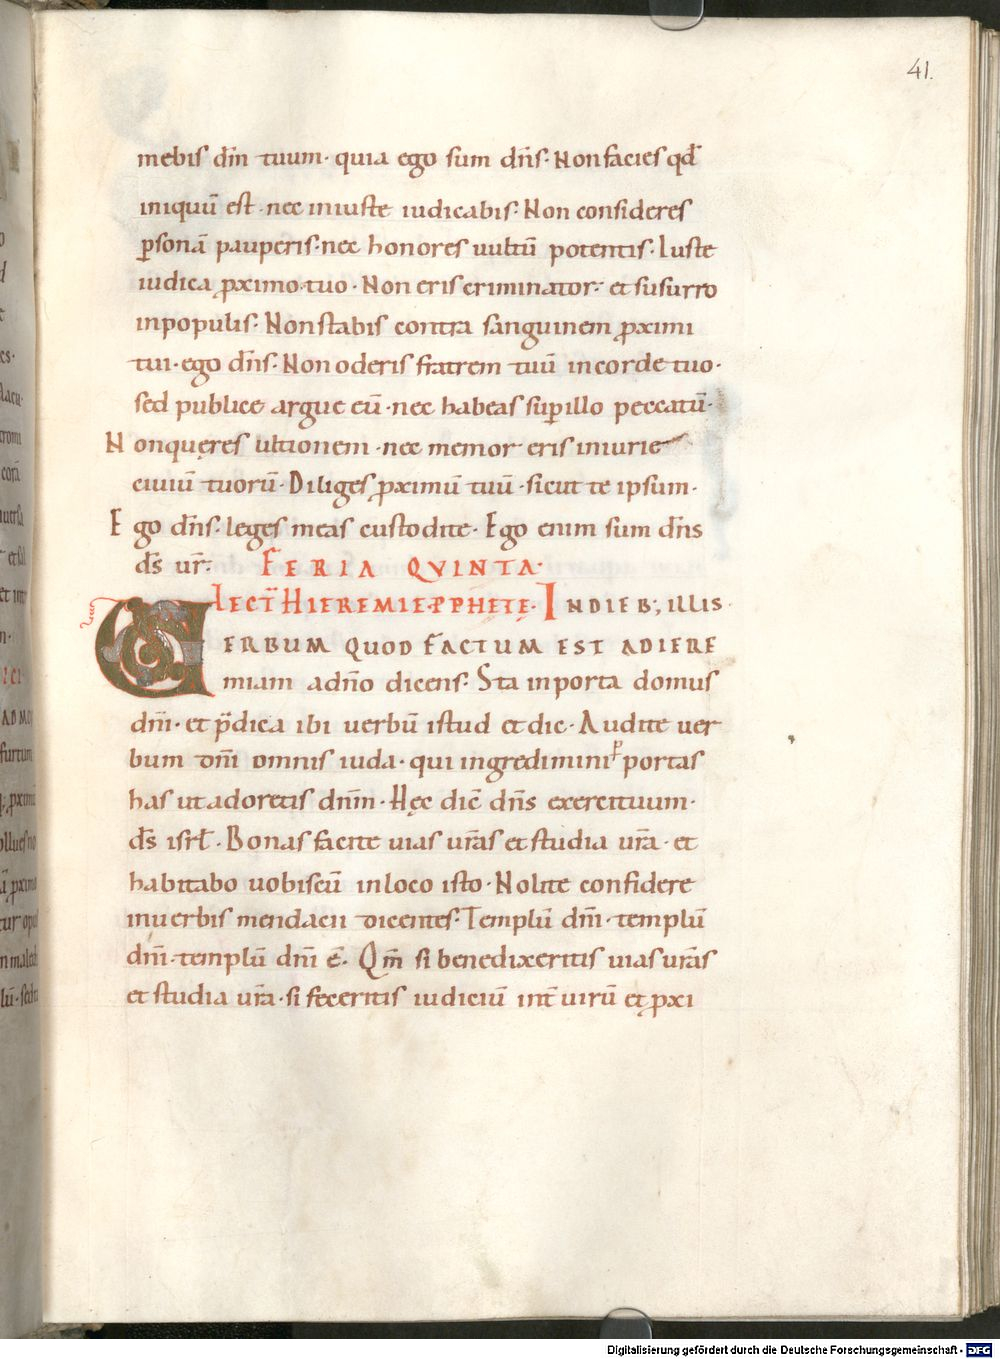 41.
mebis dn̄m tuum· quia ego sum dn̄s· Non facies qđ
iniquū est· nec iniuste iudicabis· Non consideres
ꝑsonā pauperis· nec honores uultū potentis· Iuste
iudica ꝓximo tuo· Non eris criminator· et susurro
inpopulis· Non stabis contra sanguinem ꝓximi
tui· ego dn̄s· Non oderis fratrem tuū incorde tuo·
sed publice argue eū· nec habeas sup̱ illo peccatū·
Non quęres ultionem· nec memor eris iniurie
ciuiū tuorū· Diliges ꝓximū tuū· sicut te ipsum·
Ego dn̄s· leges meas custodite· Ego enim sum dn̄s
ds̄ ur̄· FERIA QVINTA·
LECT̄ HIEREMIE·PPHETĘ· INDIEB; ILLIS·
UERBUM QUOD FACTUM EST ADIERE
miam adn̄o dicens· Sta inporta domus
dn̄i· et p̄dica ibi uerbū istud et dic· Audite uer
bum dn̄i omnis iuda· qui ingredimini p portas
has ut adoretis dn̄m· Hęc dic̄ dn̄s exercituum·
ds̄ isrl̄· Bonas facite uias ur̄as et studia ur̄a· et
habitabo uobiscū inloco isto· Nolite confidere
inuerbis mendacii dicentes· Templū dn̄i· templū
dn̄i· templū dn̄i ē· Qm̄ si benedixeritis uias ur̄as
et studia ur̄a· si feceritis iudiciū int̄ uirū et ꝓxi
Digitalisierung gefördert durch die Deutsche Forschungsgemeinschaft - DFG